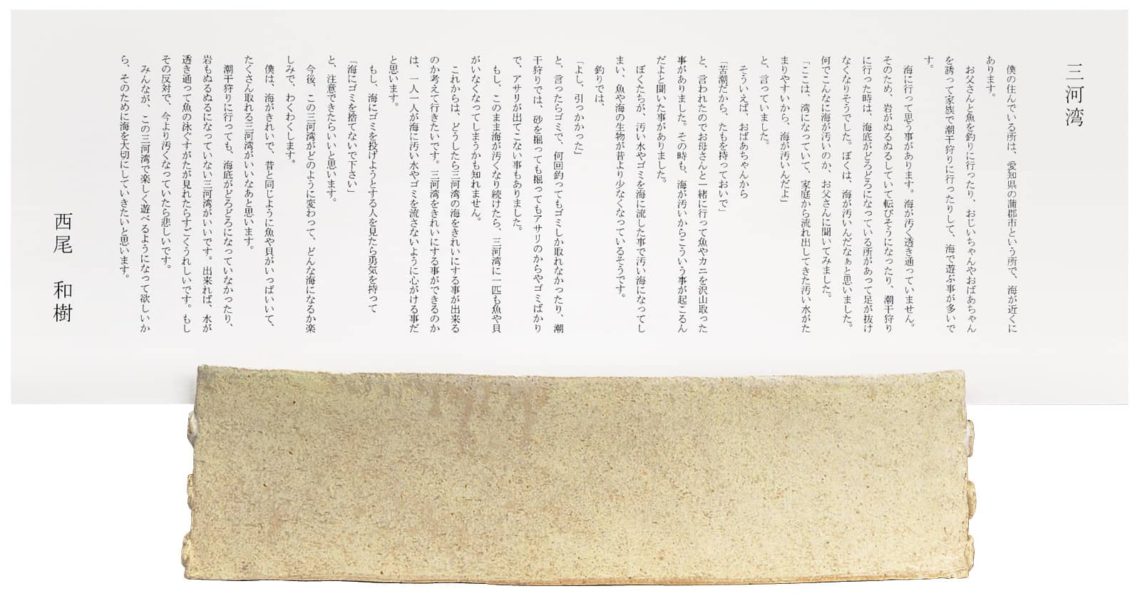 三河湾
僕の住んでいる所は、愛知県の蒲郡市という所で、海が近くに
あります。
お父さんと魚を釣りに行ったり、おじいちゃんやおばあちゃん
を誘って家族で潮干狩りに行ったりして、海で遊ぶ事が多いで
す。
海に行って思う事があります。海が汚く透き通っていません。
そのため、岩がぬるぬるしていて転びそうになったり、潮干狩り
に行った時は、海底がどろどろになっている所があって足が抜け
なくなりそうでした。ぼくは、海が汚いんだなぁと思いました。
何でこんなに海が汚いのか、お父さんに聞いてみました。
「ここは、湾になっていて、家庭から流れ出してきた汚い水がた
まりやすいから、海が汚いんだよ」
と、言っていました。
そういえば、おばあちゃんから
「苦潮だから、たもを持っておいで」
と、言われたのでお母さんと一緒に行って魚やカニを沢山取った
事がありました。その時も、海が汚いからこういう事が起こるん
だよと聞いた事がありました。
ぼくたちが、汚い水やゴミを海に流した事で汚い海になってし
まい、魚や海の生物が昔より少なくなっているそうです。
釣りでは、
「よし、引っかかった」
と、言ったらゴミで、何回釣ってもゴミしか取れなかったり、潮
干狩りでは、砂を掘っても掘ってもアサリのからやゴミばかり
で、アサリが出てこない事もありました。
もし、このまま海が汚くなり続けたら、三河湾に一匹も魚や貝
がいなくなってしまうかも知れません。
これからは、どうしたら三河湾の海をきれいにする事が出来る
のか考えて行きたいです。三河湾をきれいにする事ができるのか
は、一人一人が海に汚い水やゴミを流さないように心がける事だ
と思います。
もし、海にゴミを投げようとする人を見たら勇気を持って
「海にゴミを捨てないで下さい」
と、注意できたらいいと思います。
今後、この三河湾がどのように変わって、どんな海になるか楽
しみで、わくわくします。
僕は、海がきれいで、昔と同じように魚や貝がいっぱいいて、
たくさん取れる三河湾がいいなあと思います。
潮干狩りに行っても、海底がどろどろになっていなかったり、
岩もぬるぬるになっていない三河湾がいいです。出来れば、水が
透き通って魚の泳ぐすがたが見れたらすごくうれしいです。もし
その反対で、今より汚くなっていたら悲しいです。
みんなが、この三河湾で楽しく遊べるようになって欲しいか
ら、そのために海を大切にしていきたいと思います。
西尾 和樹